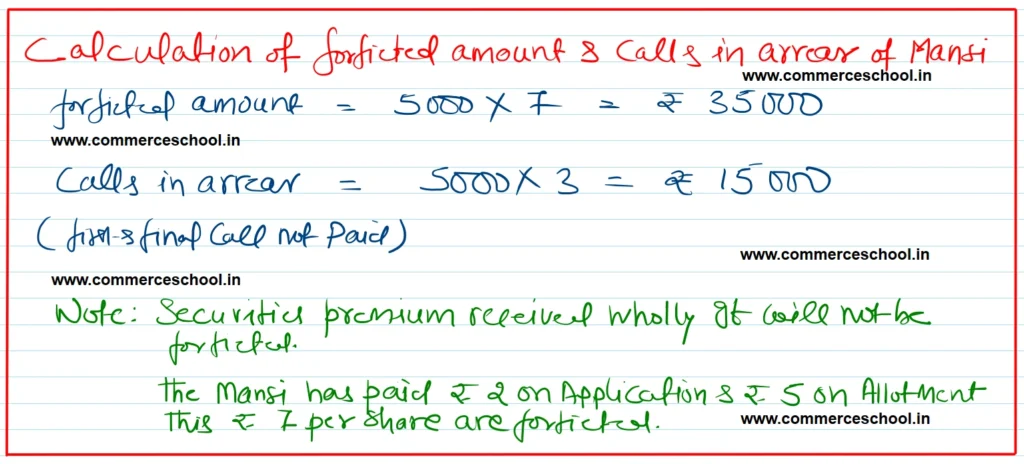 Calculation of forficted amount & Calls in arrear of Mansi
www.commerceschool.in
forficted amount = 5000 X 7 = ₹ 35000
www.commerceschool.in
Calls in arrear = 5000 X 3 = ₹ 15000
(first & final Call not Paid)
www.commerceschool.in
www.commerceschool.in
Note: Securities premium received wholly It will not be
forficted.
The Mansi has paid ₹ 2 on Application & ₹ 5 on Allotment
This ₹ 7 per share are forficted.
www.commerceschool.in